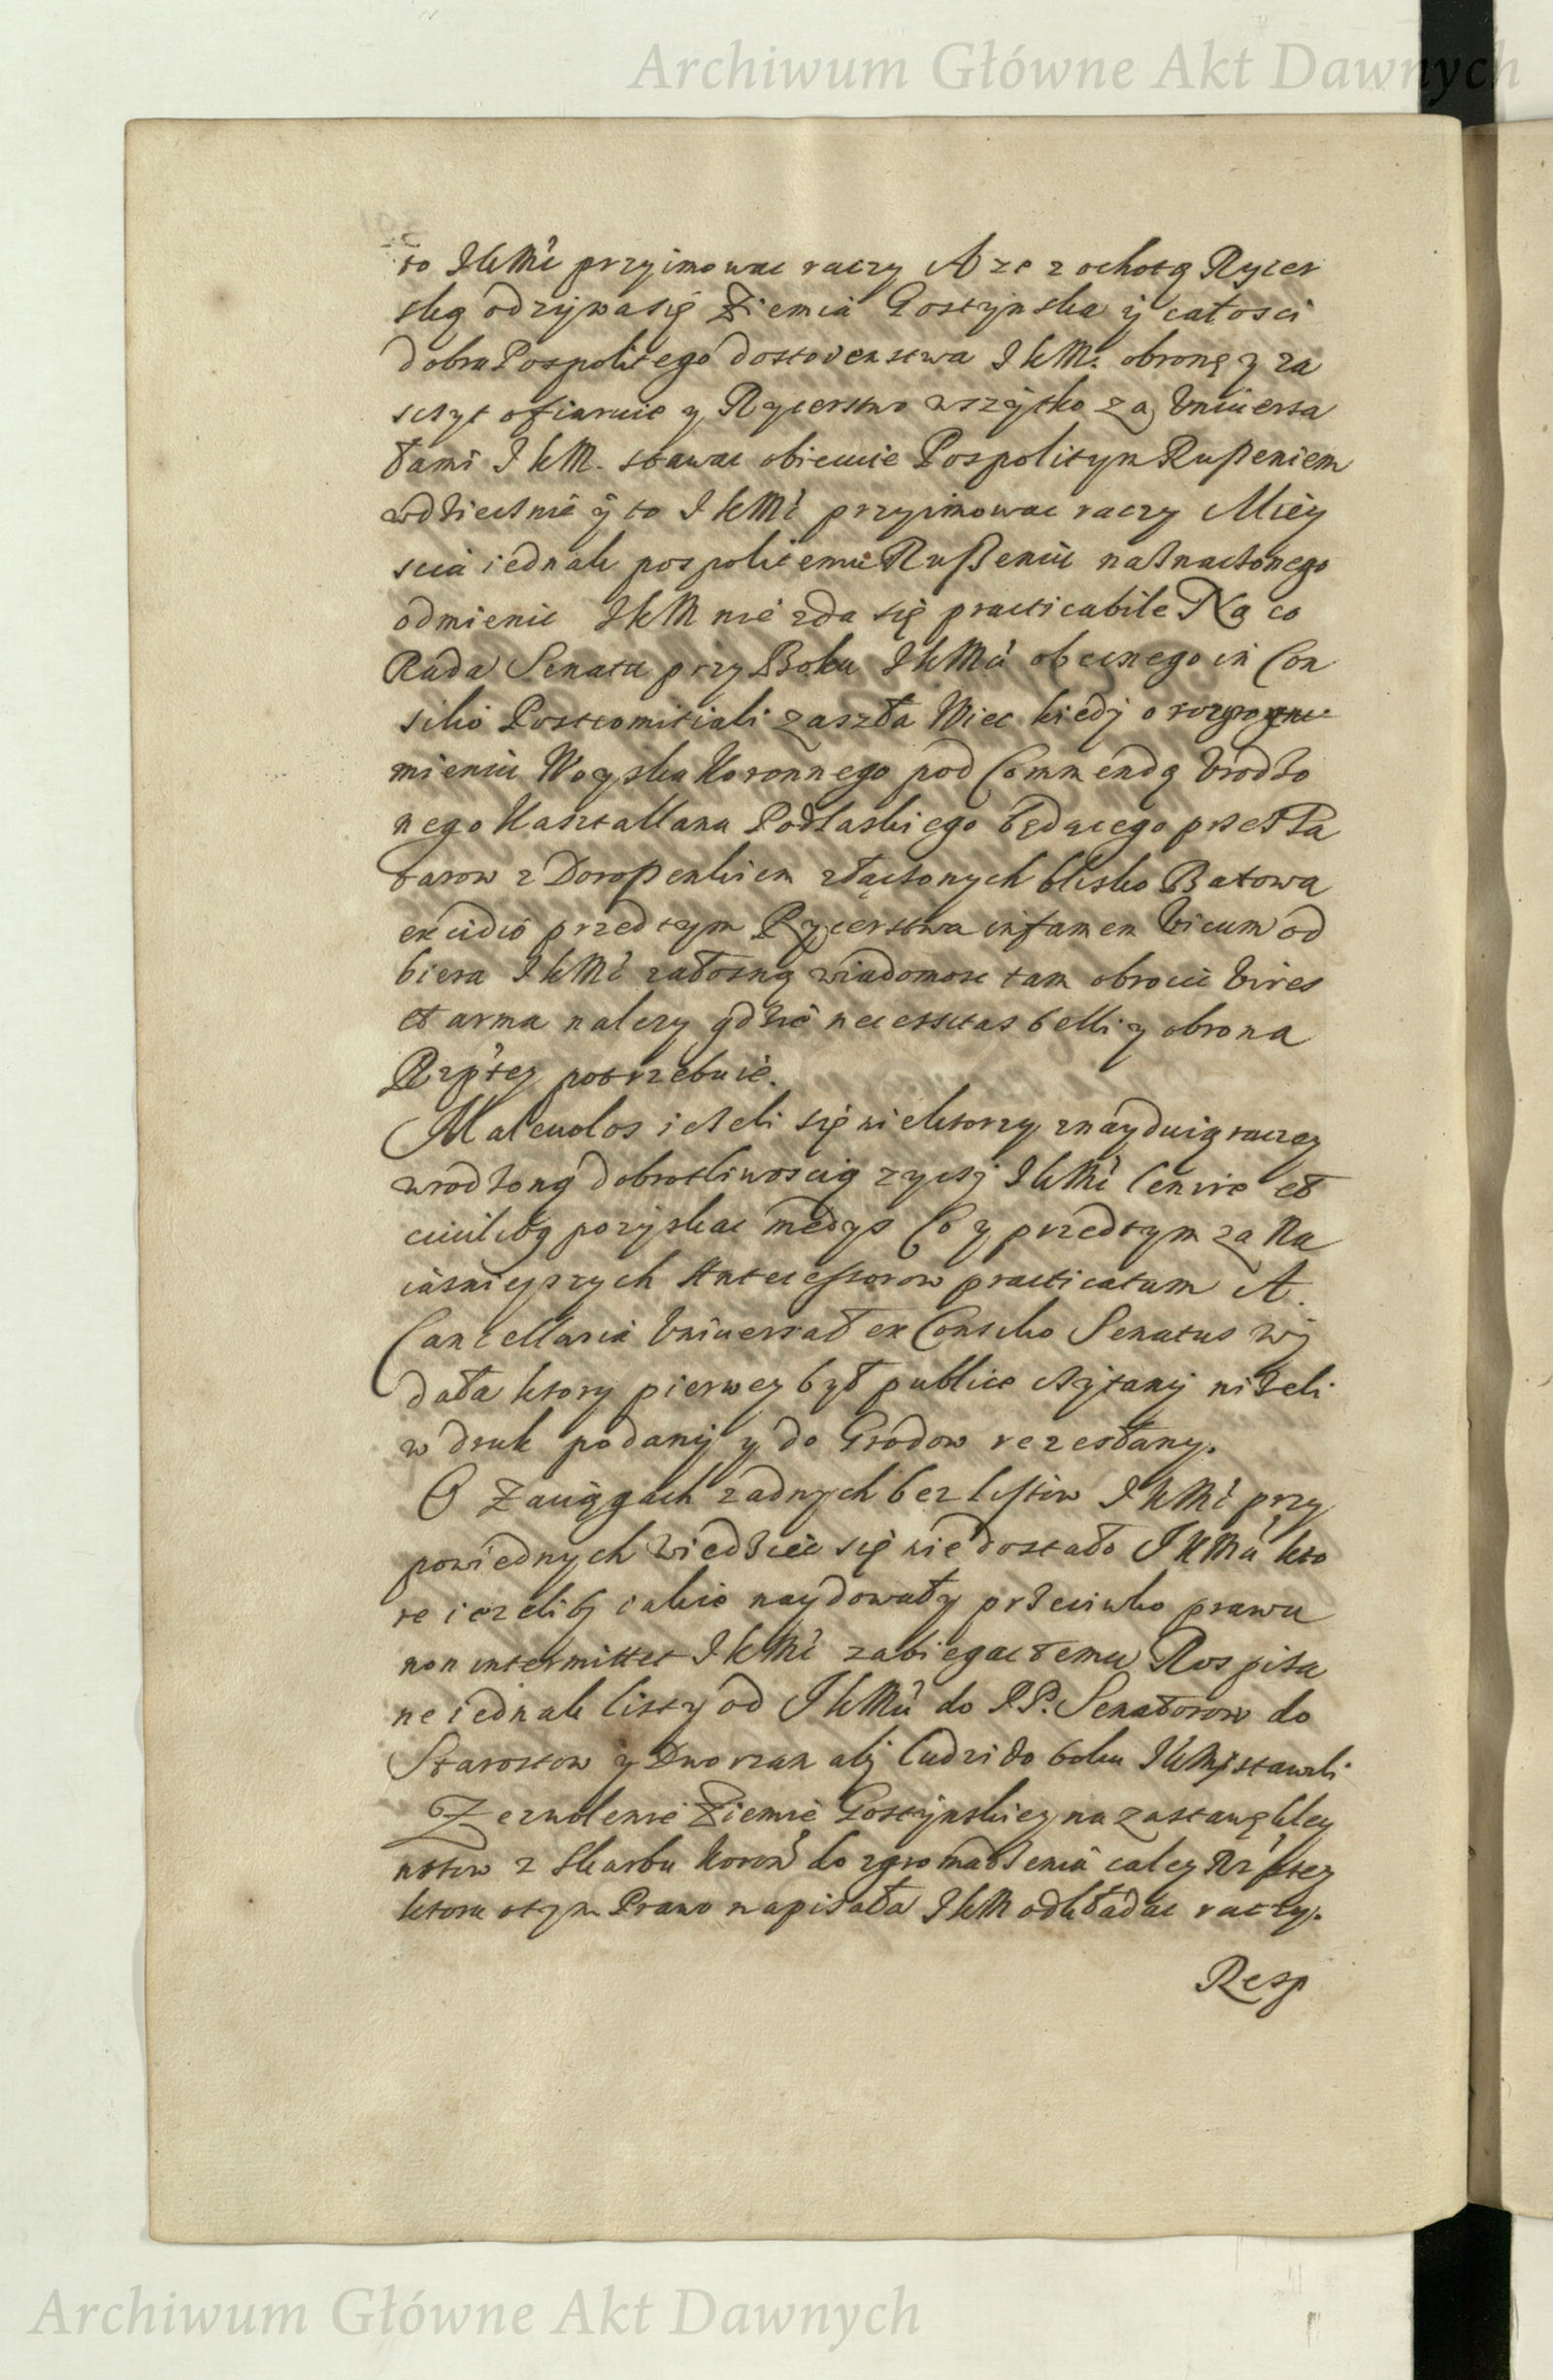 Archiwum Główne Akt Dawnych
to JKMć przyimowac raczy A ze z ochotą Rycer
ską odzywa się Ziemia Gostynska ÿ całosci
dobra Pospolitego dostoienstwa JKM. obronę y za
sczyt ofiaruie y Rycerstwo wszÿtko za Vniuersa
łami JKM. stawac obiecuie Pospolitym Rußeniem
wdzięcznie ÿ to JKMć przyimowac raczy Miey
sca iednak pospolitemu Rußeniu naznaczonego
odmienic JKM nie zda się practicabile Na co
Rada Senatu przy Boku JKMci obecnego in Con
silio Postcomitiali zaszła Wiec kiedÿ o
mieniu Woyska Koronnego pod Commendą Vrodzo
nego Kasztallana Podlaskiego będącego przez Ta
tarow z Doroßenkiem złączonych blisko Batowa
excidio przedtym Rycerstwa infamem Vicum od
biera JKMć załosną wiadomosc tam obrocic Vires
et arma nalezy gdzie necessitas belli y obrona
Rzptey potrzebuie.
Maleuolos iezeli się niektorzy znayduią raczey
wrodzoną dobrotliwoscią zyczÿ JKMć lenire et
pozÿskac medÿs Co y przedtym za Na
iasnieyszych Antecessorow practicatum A
Cancellaria Vniuersał ex Consilio Senatus wÿ
dała ktory pierwey był publice czÿtanÿ nizeli
w druk podanÿ y do Grodow rezesłany.
O Zaciągach zadnych bez listow JKMć przy
powiednych wiedziec się nie dostało JKMci kto
re iezelibÿ iakie naydowały przeciwko prawu
non intermittet JKMć zabiegac temu Rospisa
ne iednak listy od JKMci do PP. Senatorow do
Starostow y Dworzan abÿ ludzi do boku JKMci stawili
Zezwolenie Ziemie Gostÿnskiey na zastawę kley
notow z skarbu Koron do zgromadzenia całey Rzptey
ktora o tym Prawo napisała JKM odkładac raczy.
Resp
Archiwum Główne Akt Dawnych